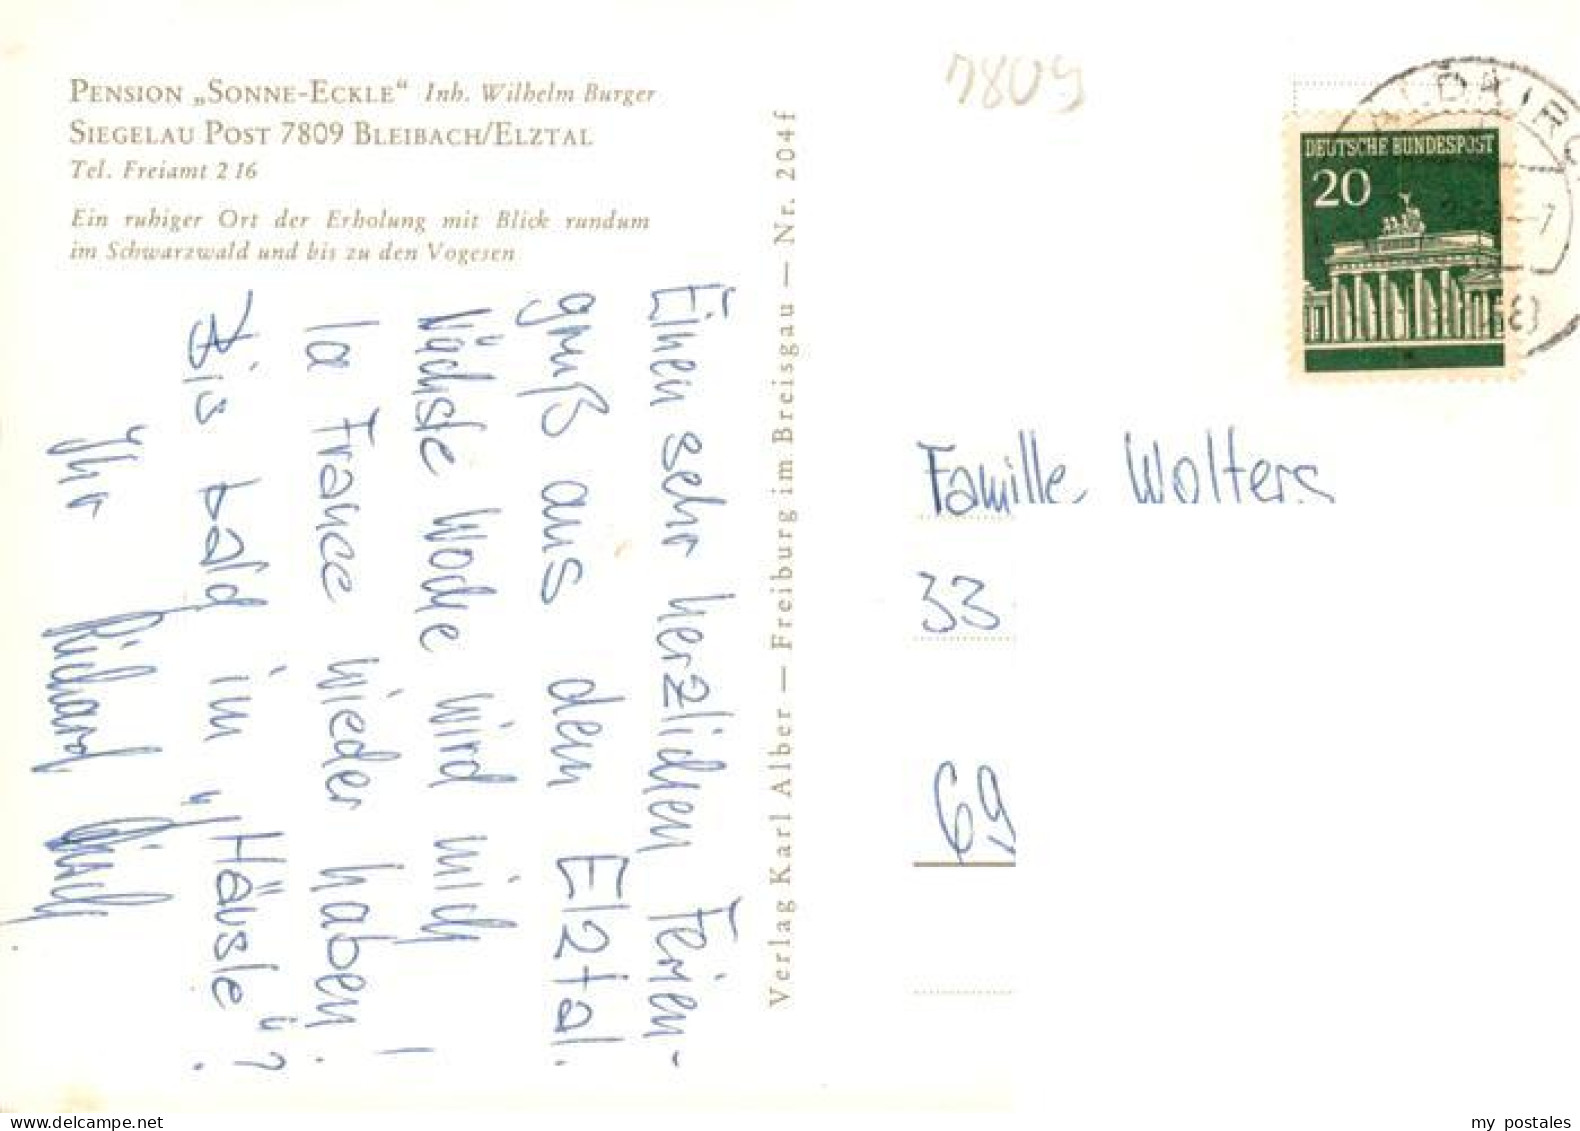 PENSION „SONNE-ECKLE“ Inh. Wilhelm Burger
SIEGELAU POST 7809 BLEIBACH/ELZTAL
Tel. Freiamt 2 16
Ein ruhiger Ort der Erholung mit Blick rundum
im Schwarzwald und bis zu den Vogesen
Einen sehr herzlichen Ferien-
gruß aus dem Elztal.
Nächste Woche wird mich
la France wieder haben!
Bis bald im „Häusle“?
Ihr
Richard
Verlag Karl Alber — Freiburg im Breisgau — Nr. 204 f
7809
DEUTSCHE BUNDESPOST
20
Famille Wolters
33
69
my postales